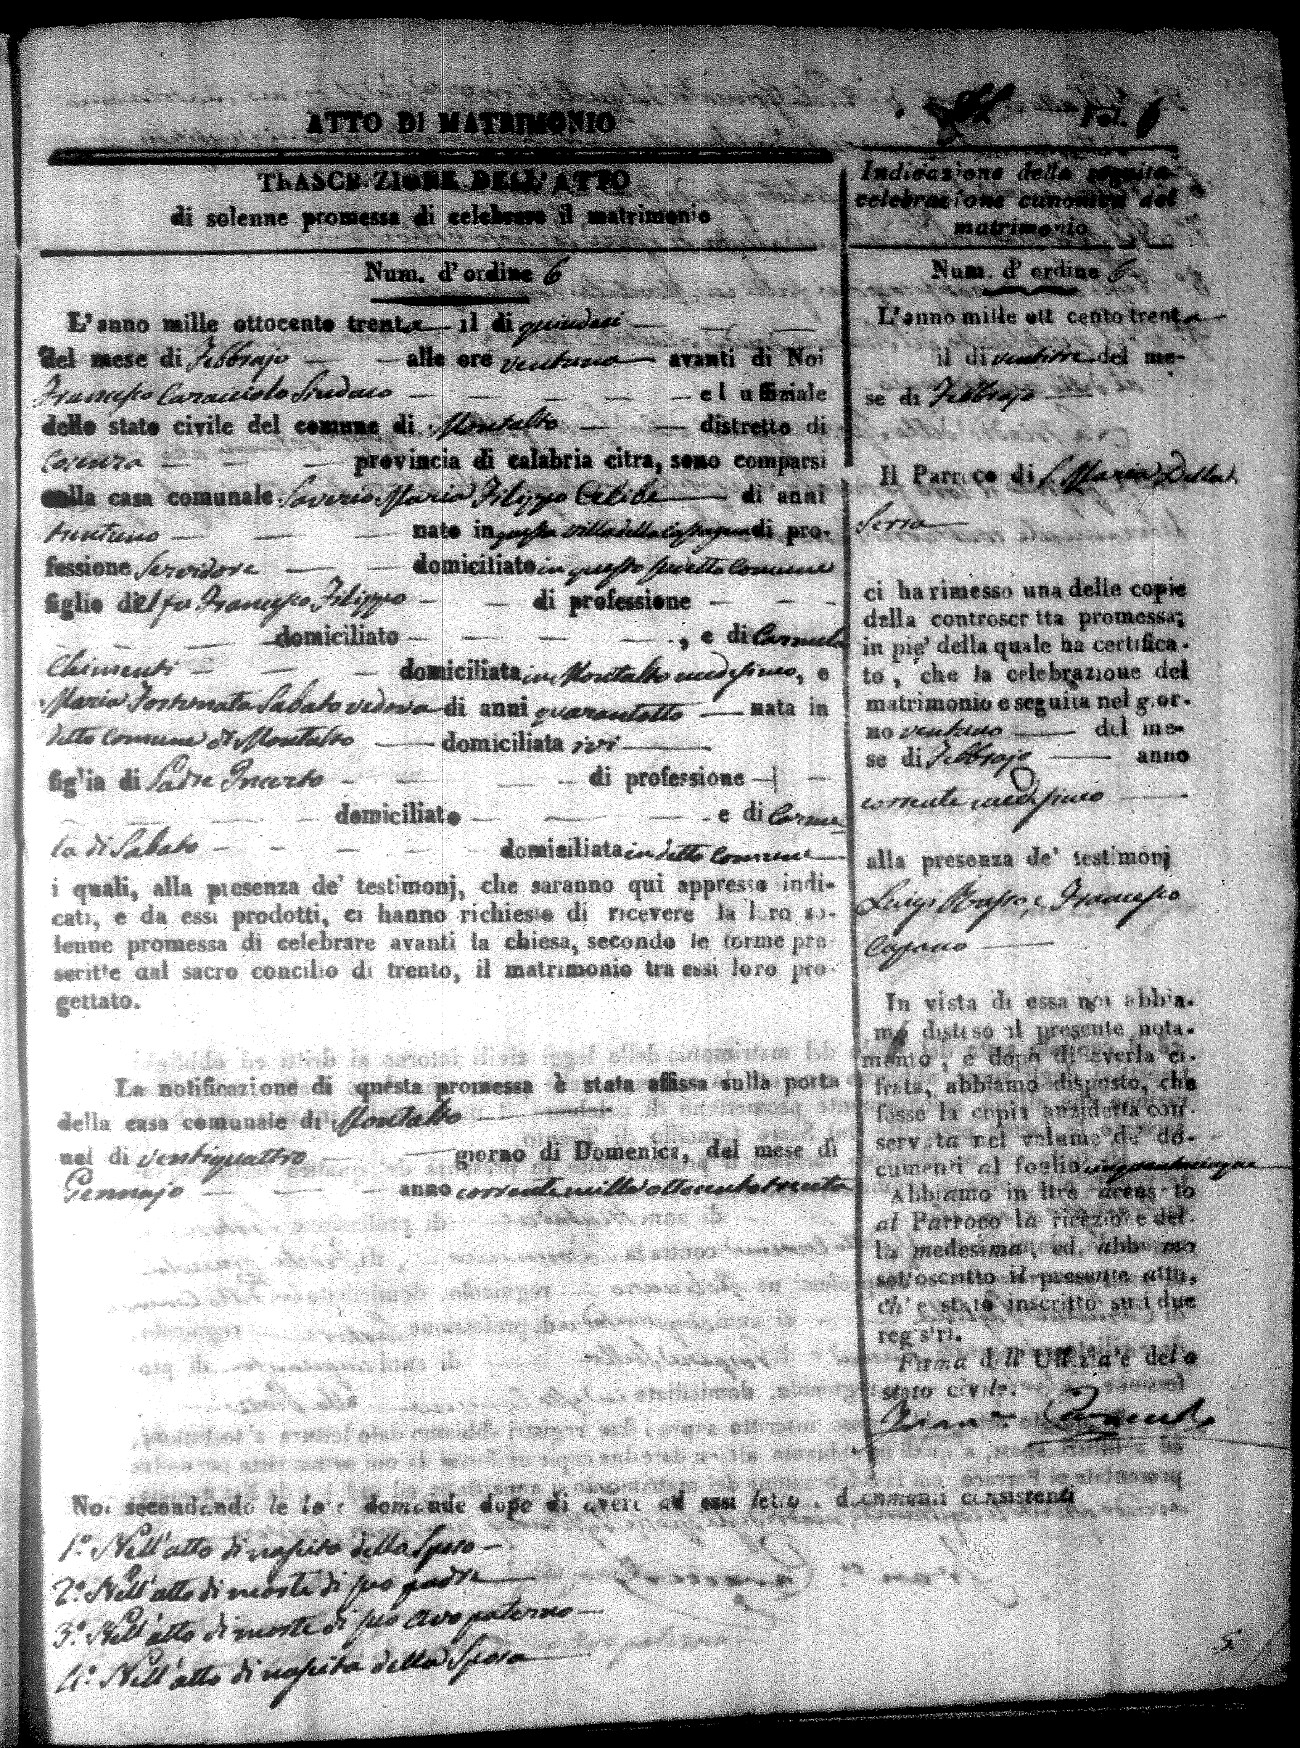 ATTO DI MATRIMONIO
TRASCRIZIONE DELL'ATTO
di solenne promessa di celebrare il matrimonio
Num. d'ordine 6
L'anno mille ottocento trenta il dì quindici
del mese di Febbrajo alle ore ventuno avanti di Noi
Francesco Caracciolo Sindaco ed uffiziale
dello stato civile del comune di Montalto distretto di
Cosenza provincia di calabria citra, sono comparsi
nella casa comunale Saverio Maria Filippo di anni
trentuno nato in questa villa della di pro-
fessione Servidore domiciliato in questo Comune
figlio del fu Francesco Filippo di professione
domiciliato , e di Carmela
Chimenti domiciliata in Montalto medesimo, e
Maria Fortunata Sabato vedova di anni quarantotto nata in
detto Comune di Montalto domiciliata ivi
figlia di Padre Incerto di professione
domiciliato e di Carme
la di Sabato domiciliata in detto Comune
i quali, alla presenza de' testimonj, che saranno qui appresso indi-
cati, e da essi prodotti, ci hanno richiesto di ricevere la loro so-
lenne promessa di celebrare avanti la chiesa, secondo le forme pre-
scritte dal sacro concilio di trento, il matrimonio tra essi loro pro-
gettato.
La notificazione di questa promessa è stata affissa sulla porta
della casa comunale di Montalto
nel dì ventiquattro giorno di Domenica, del mese di
Gennajo anno corrente mille ottocento trenta
Noi secondando le loro domande dopo di avere ad essi letto i documenti consistenti
1.° Nell'atto di nascita dello Sposo
2.° Nell'atto di morte di suo padre
3.° Nell'atto di morte di suo avo paterno
4.° Nell'atto di nascita della Sposa
Fol. 6
Indicazione della seguita
celebrazione canonica del
matrimonio
Num. d'ordine 6
L'anno mille ottocento trenta
il dì ventitre del me-
se di Febbrajo
Il Parroco di S. Maria Della
Serra
ci ha rimesso una delle copie
della controscritta promessa;
in piè della quale ha certifica-
to, che la celebrazione del
matrimonio è seguita nel gior-
no ventuno del me-
se di Febbrajo anno
corrente medesimo
alla presenza de' testimonj
Luigi Russo, e Francesco
Capano
In vista di essa noi abbia-
mo disteso il presente nota-
mento, e dopo di averla ci-
frata, abbiamo disposto, che
fosse la copia anzidetta con-
servata nel volume de' do-
cumenti al foglio cinquantacinque
Abbiamo inoltre accusato
al Parroco la ricezione del-
la medesima, ed abbiamo
sottoscritto il presente atto,
ch'è stato inscritto su i due
registri.
Firma dell'Uffiziale dello
stato civile.
5